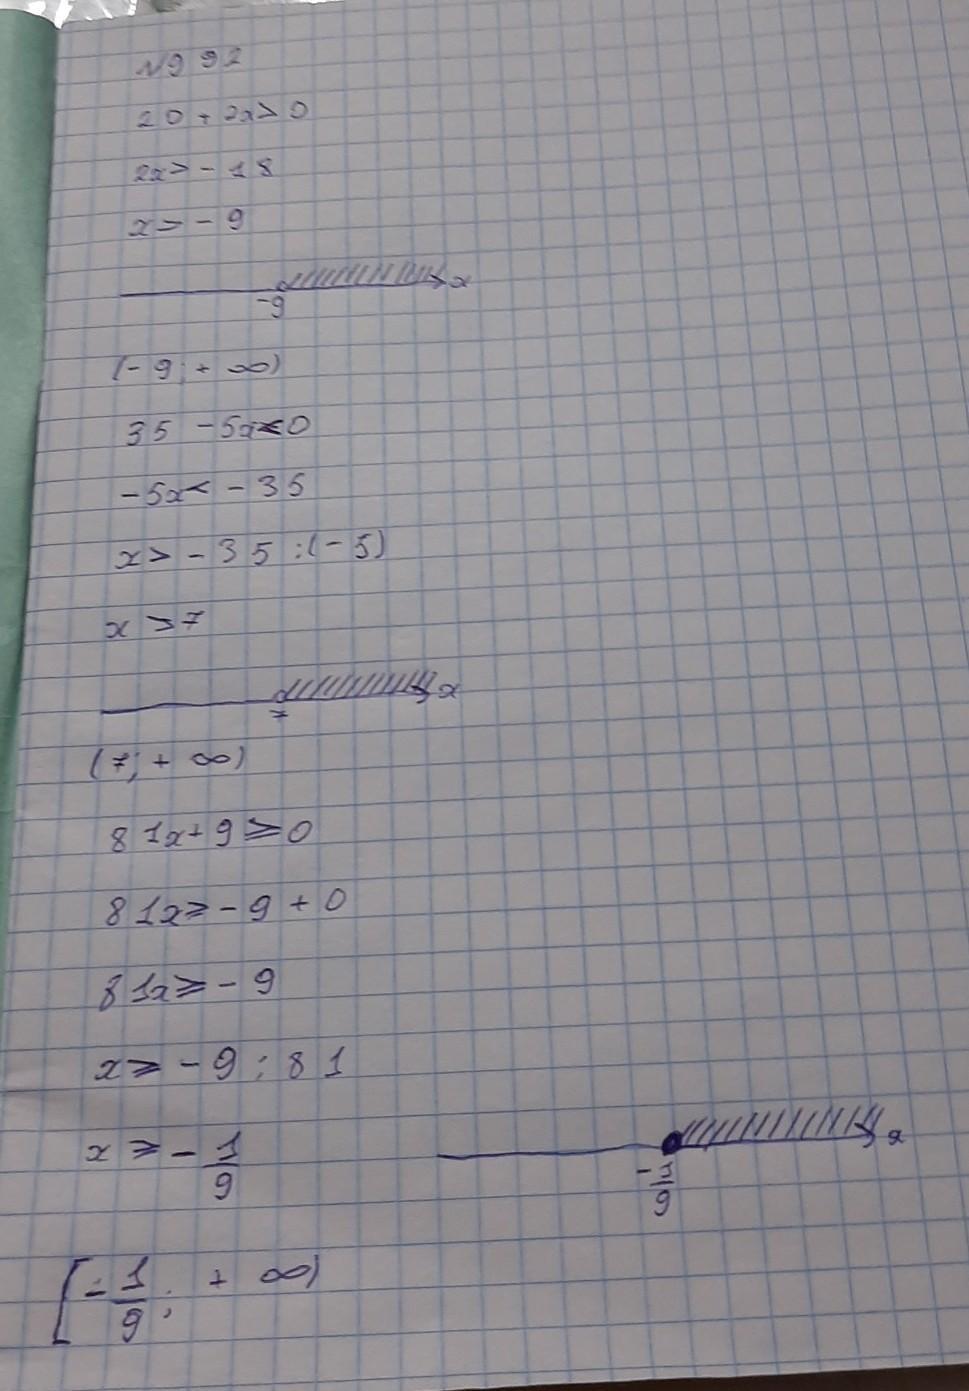 № 992
20 + 2x > 0
2x > - 18
x > - 9
-9 x
(- 9; + ∞)
35 - 5x < 0
- 5x < - 35
x > - 35 : (- 5)
x > 7
7 x
(7; + ∞)
81x + 9 ⩾ 0
81x ⩾ - 9 + 0
81x ⩾ - 9
x ⩾ - 9 : 81
x ⩾ - 1/9
-1/9 x
[- 1/9; + ∞)